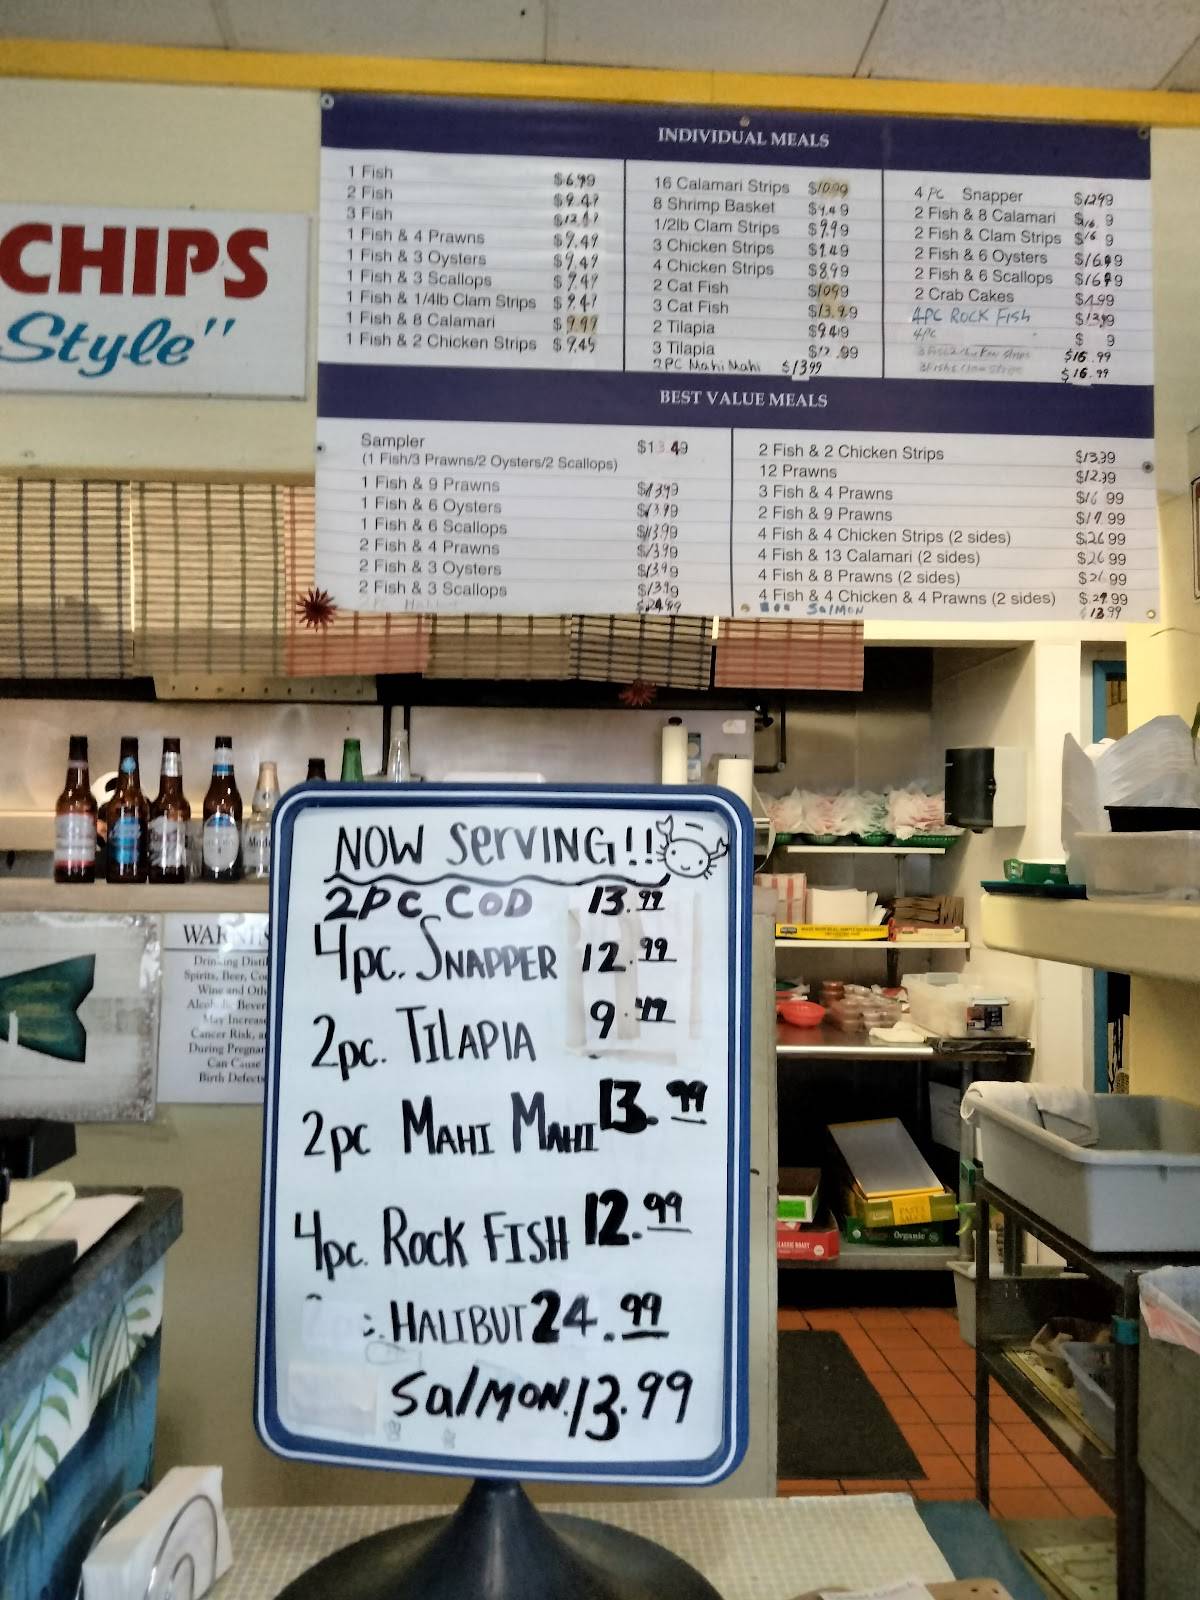 CHIPS
Style"
INDIVIDUAL MEALS
1 Fish $6.99
2 Fish $9.47
3 Fish
1 Fish & 4 Prawns $9.49
1 Fish & 3 Oysters $9.49
1 Fish & 3 Scallops $9.49
1 Fish & 1/4lb Clam Strips $9.47
1 Fish & 8 Calamari $9.99
1 Fish & 2 Chicken Strips $9.45
16 Calamari Strips $10.99
8 Shrimp Basket $9.49
1/2lb Clam Strips $9.99
3 Chicken Strips
4 Chicken Strips $8.99
2 Cat Fish $10.99
3 Cat Fish $13.99
2 Tilapia $9.49
3 Tilapia $12.99
2PC Mahi Mahi $13.99
4 PC Snapper $12.99
2 Fish & 8 Calamari
2 Fish & Clam Strips
2 Fish & 6 Oysters $16.99
2 Fish & 6 Scallops $16.99
2 Crab Cakes
4PC ROCK FISH
4PC $ 9
$16.99
$16.99
BEST VALUE MEALS
Sampler $13.49
(1 Fish/3 Prawns/2 Oysters/2 Scallops)
1 Fish & 9 Prawns
1 Fish & 6 Oysters
1 Fish & 6 Scallops $13.99
2 Fish & 4 Prawns $13.99
2 Fish & 3 Oysters $13.99
2 Fish & 3 Scallops
$24.99
2 Fish & 2 Chicken Strips
12 Prawns
3 Fish & 4 Prawns $16.99
2 Fish & 9 Prawns $17.99
4 Fish & 4 Chicken Strips (2 sides) $26.99
4 Fish & 13 Calamari (2 sides) $26.99
4 Fish & 8 Prawns (2 sides)
4 Fish & 4 Chicken & 4 Prawns (2 sides)
SALMON 13.99
NOW SERVING!!
2PC COD 13.99
4pc. SNAPPER 12.99
2pc. TILAPIA 9.49
2pc MAHI MAHI 13.99
4pc. ROCK FISH 12.99
HALIBUT 24.99
Salmon 13.99
Drinking
Spirits, Beer,
Wine and
May Increase
Cancer Risk,
During
Can Cause
Birth Defects
Organic